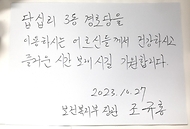 답십리 3동 경로당을
이용하시는 어르신들께서 건강하시고
즐거운 시간 보내시길 기원합니다.
2023.10.27
보건복지부 장관 조규홍